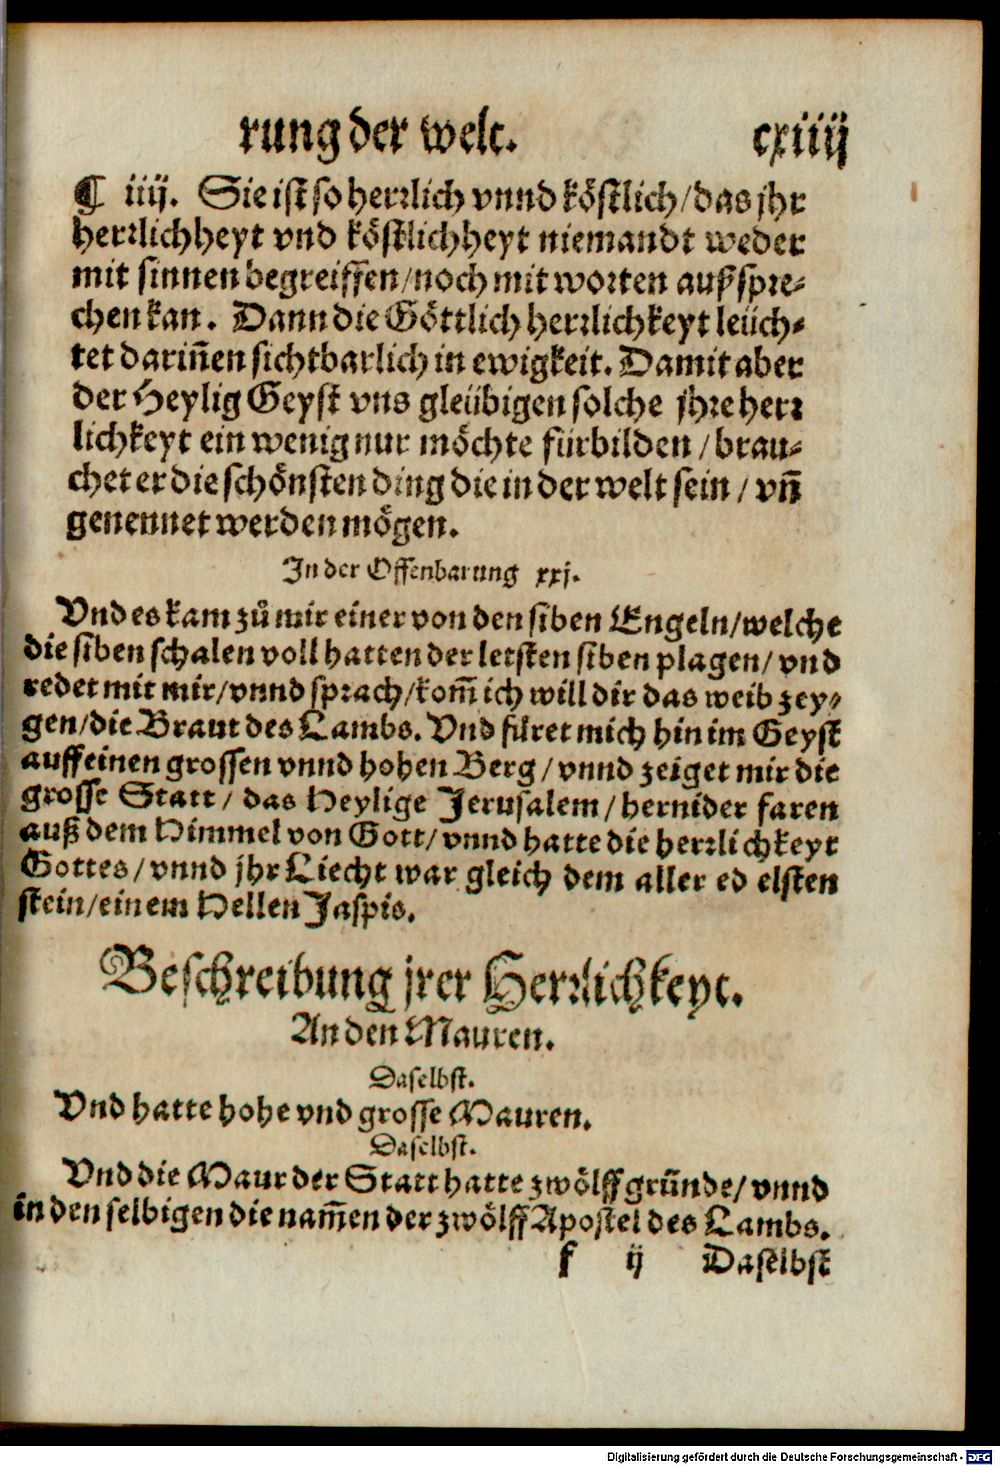 rung der welt. cxiiij
¶ iiij. Sie ist so herrlich vnnd köstlich/das jhr
herrlichheyt vnd köstlichheyt niemandt weder
mit sinnen begreiffen/noch mit worten außspre-
chen kan. Dann die Göttlich herrlichkeyt leüch-
tet darin̄en sichtbarlich in ewigkeit. Damit aber
der Heylig Geyst vns gleübigen solche jhre herr
lichkeyt ein wenig nur möchte fürbilden/brau-
chet er die schönsten ding die in der welt sein/vn̄
genennet werden mögen.
In der Offenbarung xxj.
Vnd es kam zů mir einer von den siben Engeln/welche
die siben schalen voll hatten der letsten siben plagen/vnd
redet mit mir/vnnd sprach/kom̄ ich will dir das weib zey-
gen/die Braut des Lambs. Vnd füret mich hin im Geyst
auff einen grossen vnnd hohen Berg/vnnd zeiget mir die
grosse Statt/das Heylige Jerusalem/hernider faren
auß dem Himmel von Gott/vnnd hatte die herrlichkeyt
Gottes/vnnd jhr Liecht war gleich dem aller ed elsten
stein/einem Hellen Jaspis.
Beschreibung jrer Herrlichkeyt.
An den Mauren.
Daselbst.
Vnd hatte hohe vnd grosse Mauren.
Daselbst.
Vnd die Maur der Statt hatte zwölff gründe/vnnd
in den selbigen die nam̄en der zwölff Apostel des Lambs.
f ij Daselbst
Digitalisierung gefördert durch die Deutsche Forschungsgemeinschaft - DFG